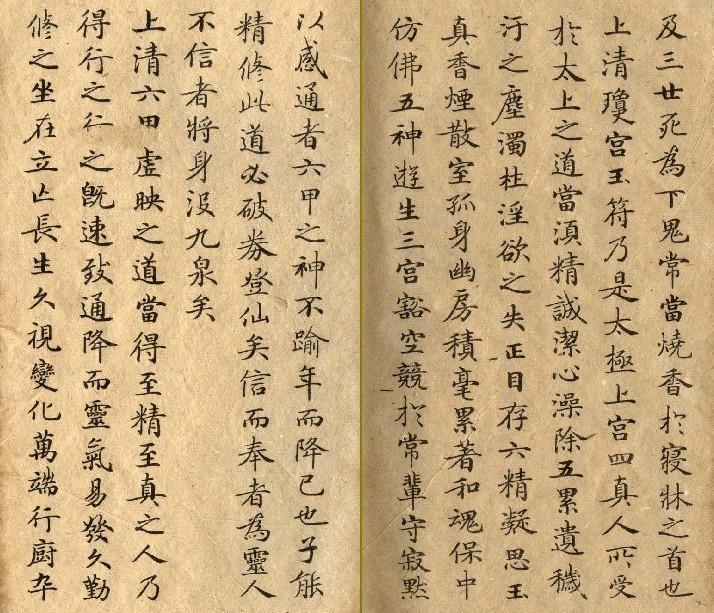 及三世死為下鬼常當燒香於寢牀之首也
上清瓊宫玉符乃是太極上宫四真人所受
於太上之道當湏精誠潔心澡除五累遺穢
汙之塵濁杜淫欲之失正目存六精凝思玉
真香煙散室孤身幽房積毫累著和魂保中
仿佛五神遊生三宫豁空競於常輩守寂默
以感通者六甲之神不踰年而降已也子能
精修此道必破券登仙矣信而奉者為靈人
不信者將身沒九泉矣
上清六甲虛映之道當得至精至真之人乃
得行之行之既速致通降而靈氣易發久勤
修之坐在立亡長生久視變化萬端行廚卒